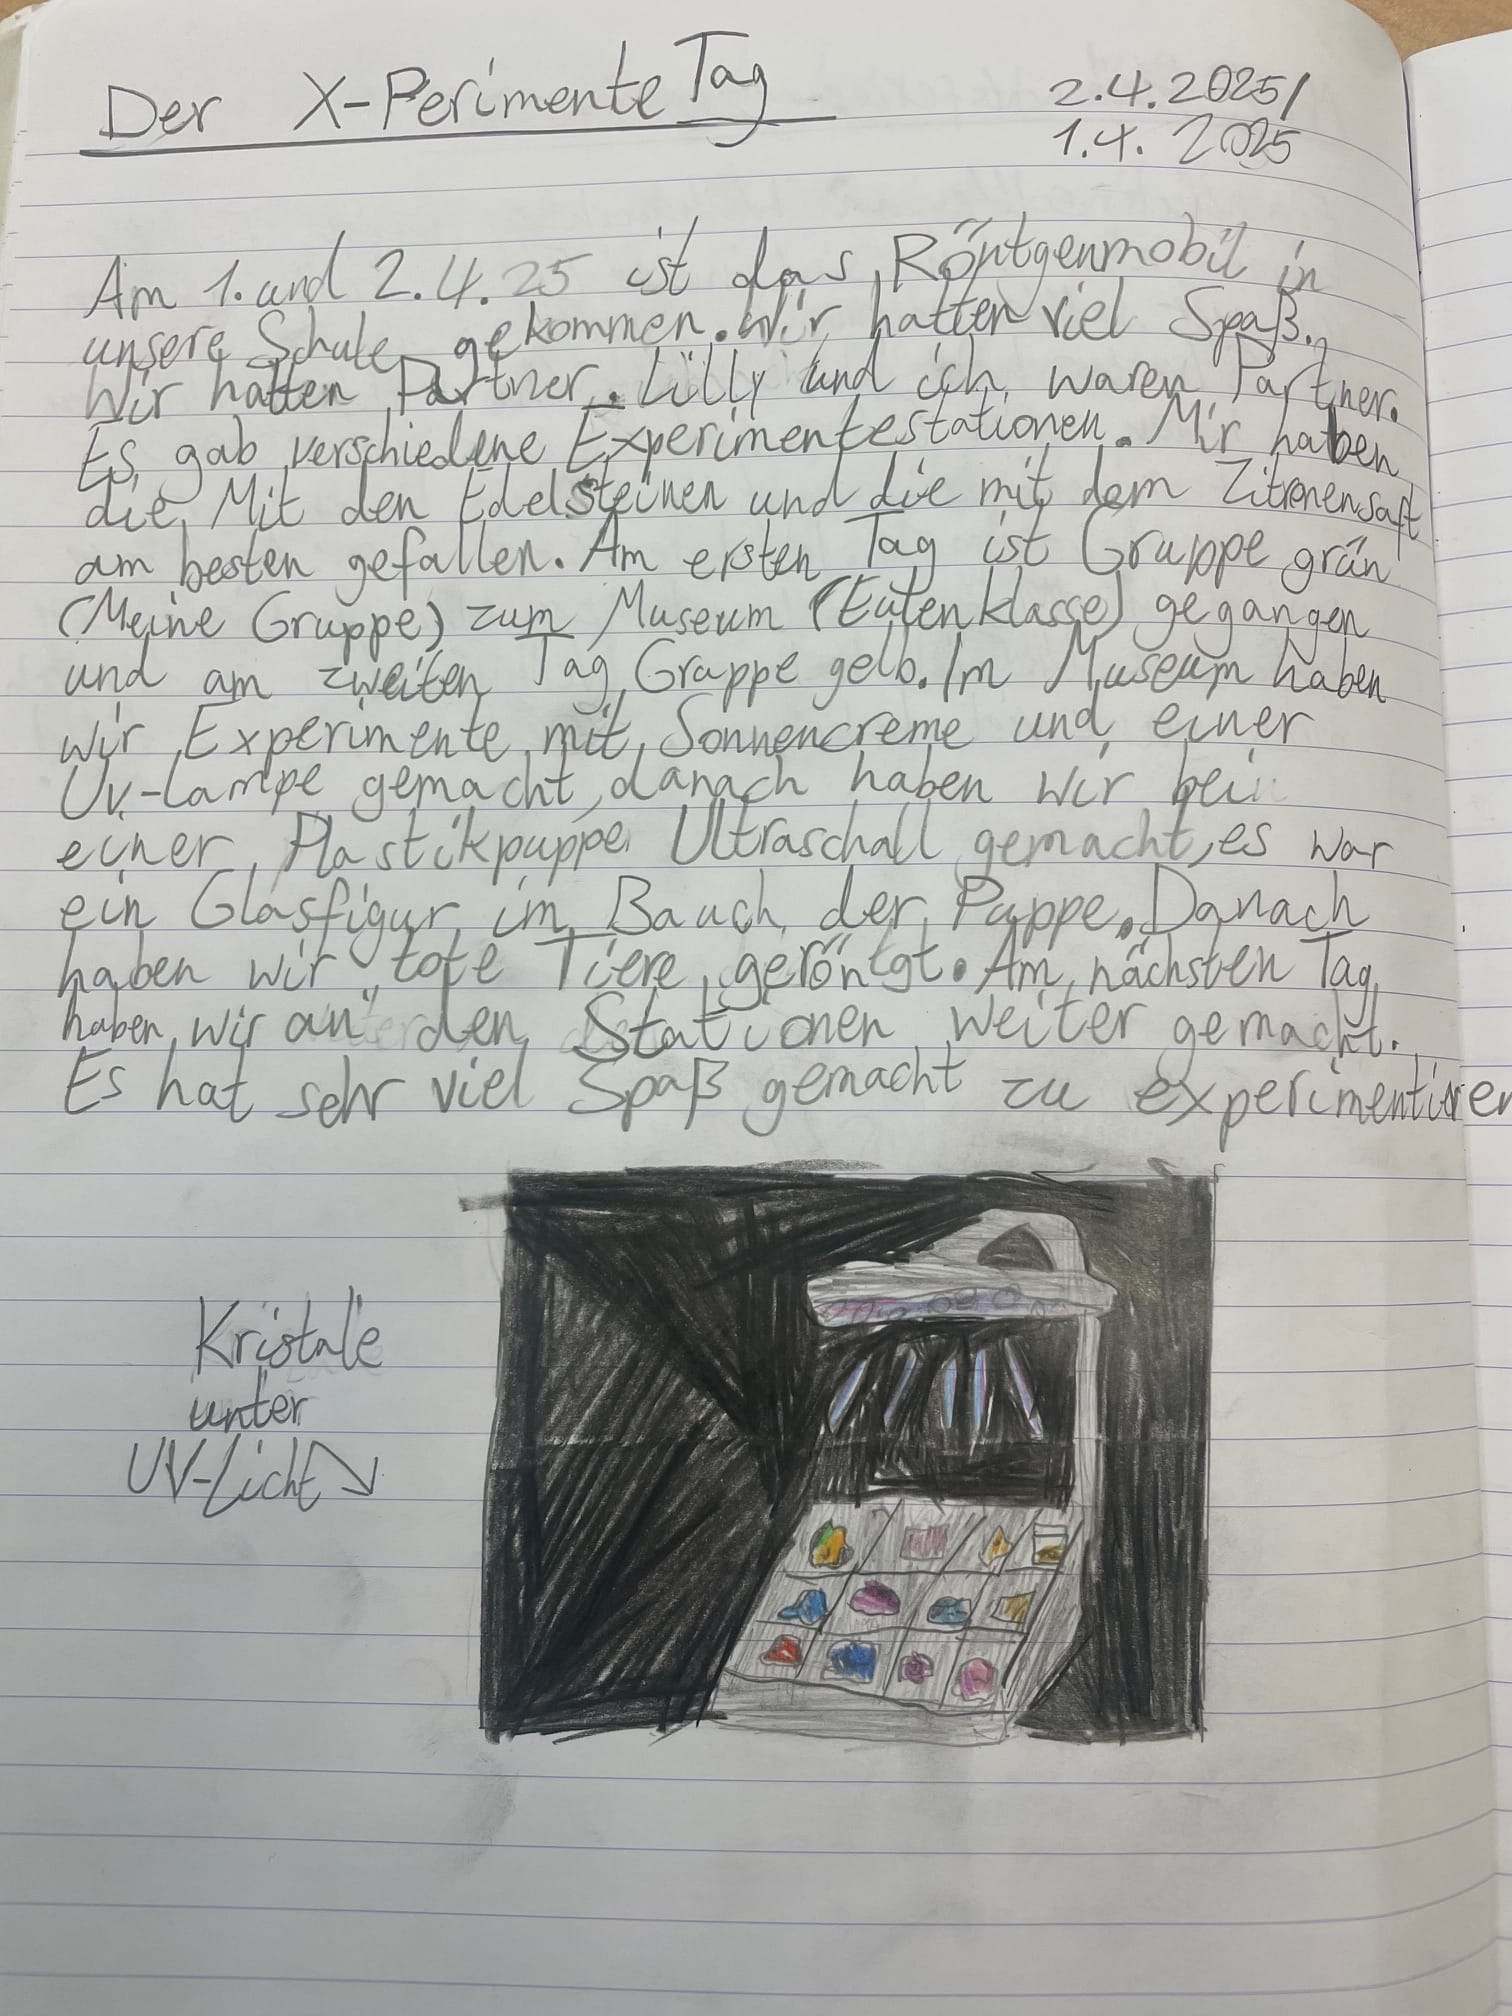 Der X-Perimente Tag
2.4.2025/
1.4.2025
Am 1. und 2.4.25 ist das Röntgenmobil in
unsere Schule gekommen. Wir hatten viel Spaß.
Wir hatten Partner. Lilly und ich waren Partner.
Es gab verschiedene Experimentestationen. Mir haben
die Mit den Edelsteinen und die mit dem Zitronensaft
am besten gefallen. Am ersten Tag ist Gruppe grün
(Meine Gruppe) zum Museum (Eulenklasse) gegangen
und am zweiten Tag Gruppe gelb. Im Museum haben
wir Experimente mit Sonnencreme und einer
UV-Lampe gemacht, danach haben wir bei
einer Plastikpuppe Ultraschall gemacht, es war
ein Glasfigur im Bauch der Puppe. Danach
haben wir tote Tiere geröntgt. Am nächsten Tag
haben wir an den Stationen weiter gemacht.
Es hat sehr viel Spaß gemacht zu experimentieren
Kristale
unter
UV-Licht↘